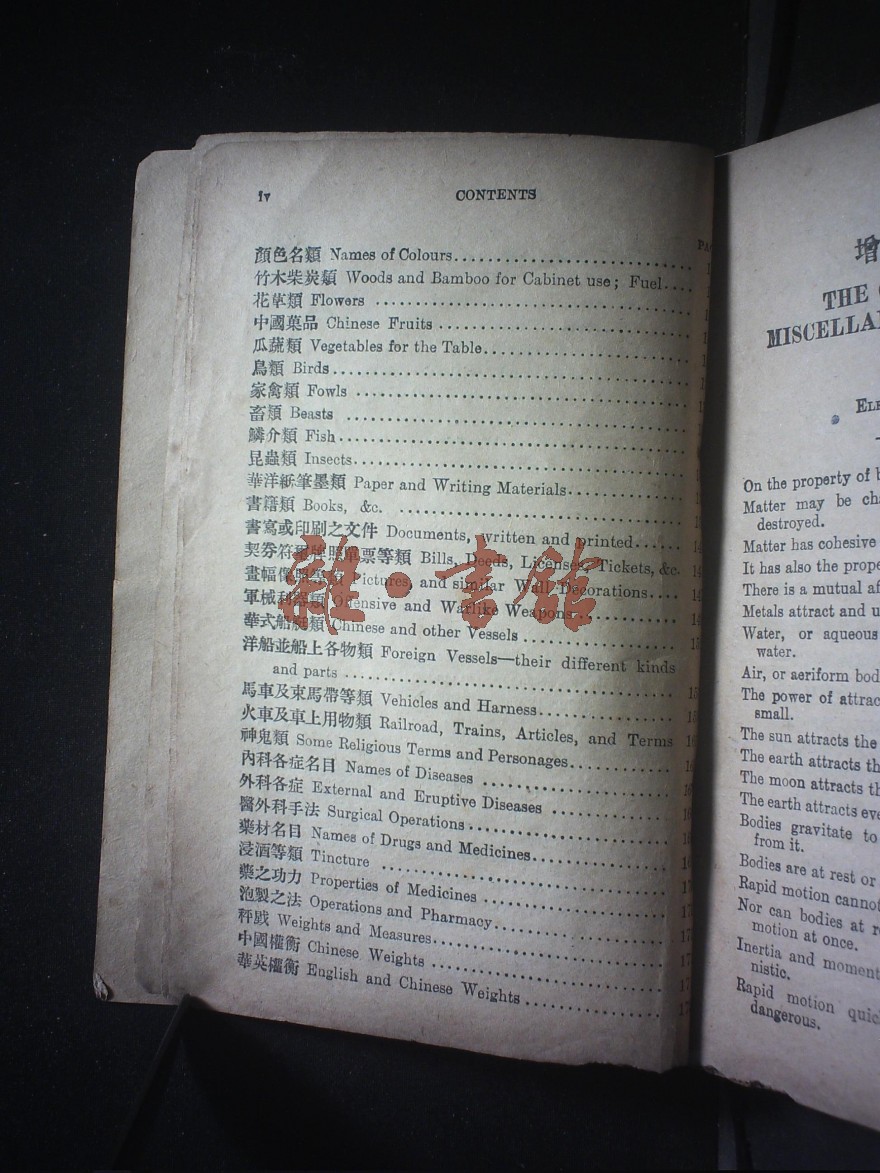 iv CONTENTS
顏色名類 Names of Colours
竹木柴炭類 Woods and Bamboo for Cabinet use; Fuel
花草類 Flowers
中國菓品 Chinese Fruits
瓜蔬類 Vegetables for the Table
鳥類 Birds
家禽類 Fowls
畜類 Beasts
鱗介類 Fish
昆蟲類 Insects
華洋紙筆墨類 Paper and Writing Materials
書籍類 Books, &c.
書寫或印刷之文件 Documents, written and printed
契券符 牌照單票等類 Bills, Deeds, Licenses, Tickets, &c.
畫幅 Pictures, and similar Wall Decorations
軍械利器類 Offensive and Warlike Weapons
華式船艇類 Chinese and other Vessels
洋船並船上各物類 Foreign Vessels—their different kinds
and parts
馬車及束馬帶等類 Vehicles and Harness
火車及車上用物類 Railroad, Trains, Articles, and Terms
神鬼類 Some Religious Terms and Personages
內科各症名目 Names of Diseases
外科各症 External and Eruptive Diseases
醫外科手法 Surgical Operations
藥材名目 Names of Drugs and Medicines
浸酒等類 Tincture
藥之功力 Properties of Medicines
泡製之法 Operations and Pharmacy
秤戥 Weights and Measures
中國權衡 Chinese Weights
華英權衡 English and Chinese Weights
雜·書館
增
THE
MISCELLAN
ELE
On the property of b
Matter may be cha
destroyed.
Matter has cohesive
It has also the prope
There is a mutual af
Metals attract and u
Water, or aqueous
water.
Air, or aeriform bod
The power of attrac
small.
The sun attracts the
The earth attracts th
The moon attracts th
The earth attracts eve
Bodies gravitate to
from it.
Bodies are at rest or
Rapid motion cannot
Nor can bodies at re
motion at once.
Inertia and moment
nistic.
Rapid motion quic
dangerous.